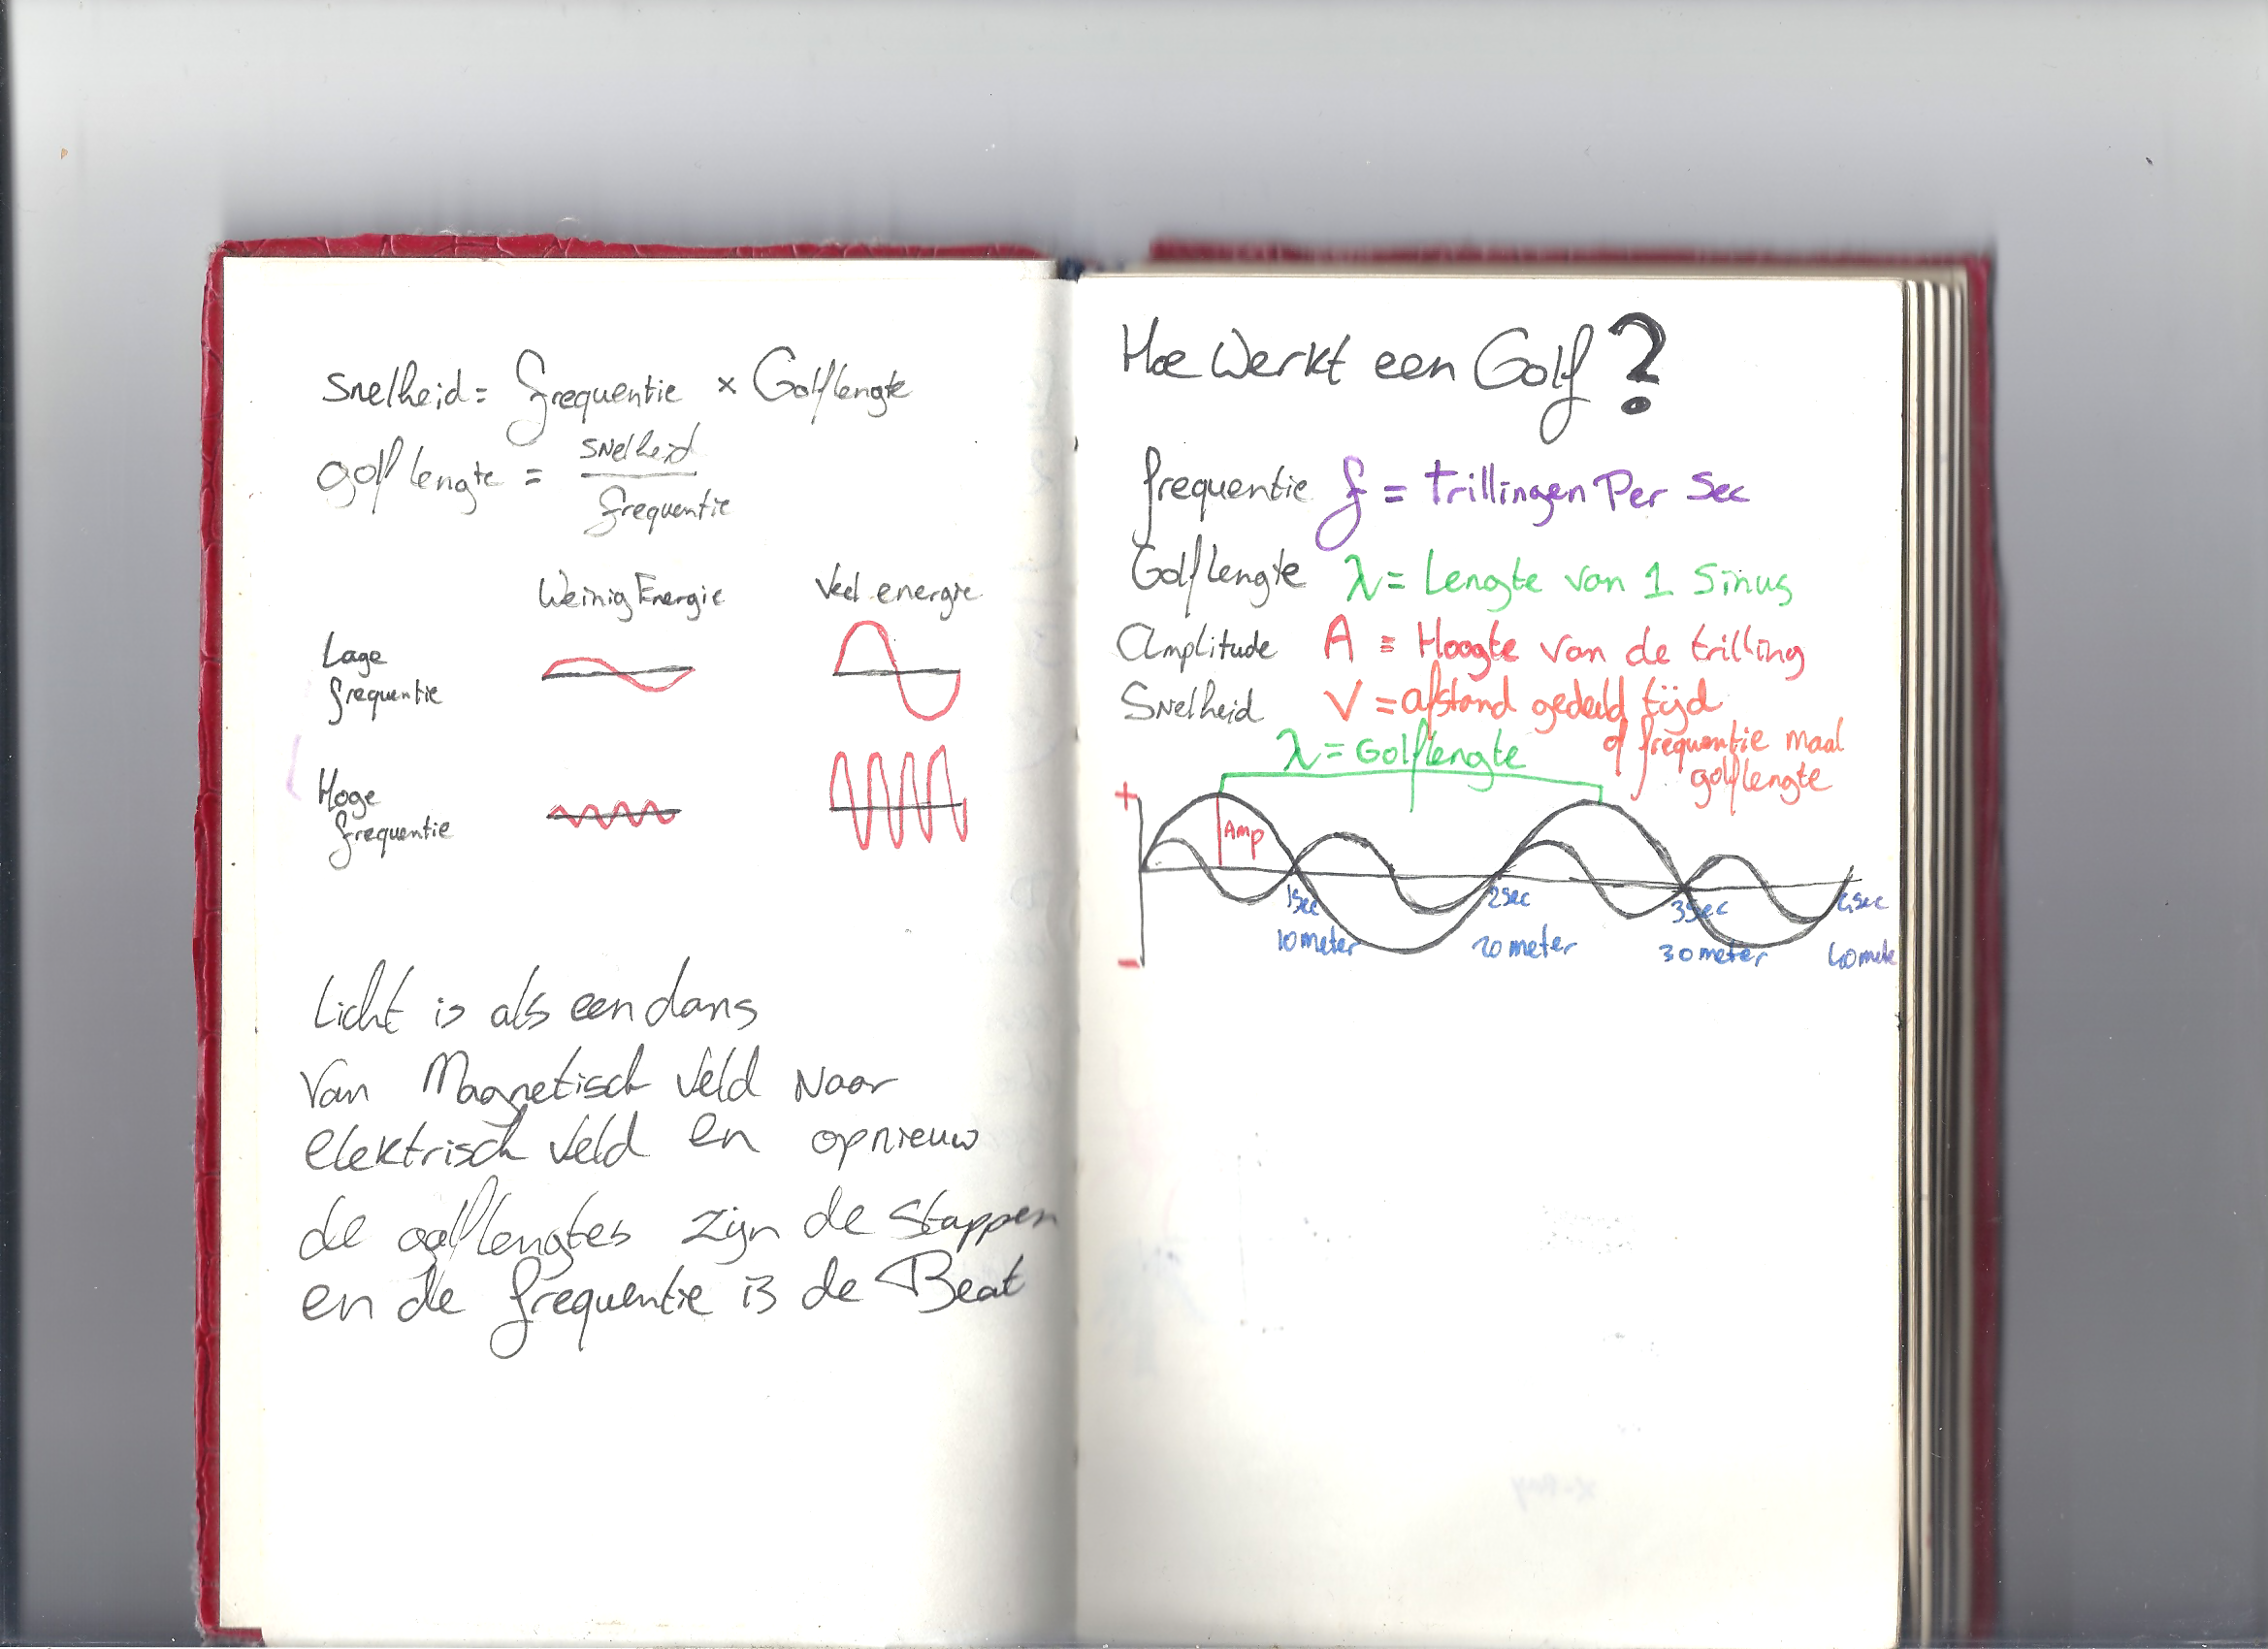 Snelheid = frequentie x Golflengte
golflengte = snelheid
frequentie
Weinig Energie Veel energie
Lage
frequentie
Hoge
frequentie
Licht is als een dans
Van Magnetisch veld Naar
elektrisch veld en opnieuw
de golflengtes zijn de stappen
en de frequentie is de Beat
Hoe Werkt een Golf?
frequentie f = trillingen Per Sec
Golflengte λ = Lengte van 1 Sinus
Amplitude A = Hoogte van de trilling
Snelheid V = afstand gedeeld tijd
of frequentie maal
golflengte
λ = Golflengte
+
Amp
1sec 2sec 3sec 4sec
10 meter 20 meter 30 meter 40 mete
-